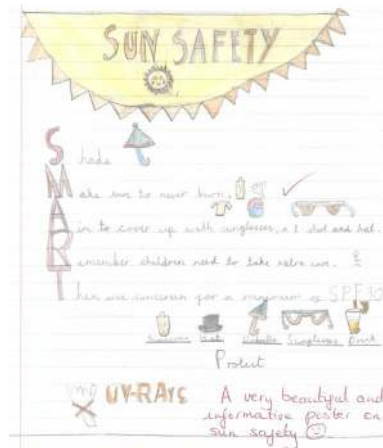 SUN SAFETY
Shade
Make sure to never burn.
Aim to cover up with sunglasses, a t shirt and hat.
Remember children need to take extra care.
Then use sunscreen for a minimum of SPF30
Sunscreen Hat Umbrella Sunglasses Drink
Protect
UV-RAYS
A very beautiful and
informative poster on
sun safety